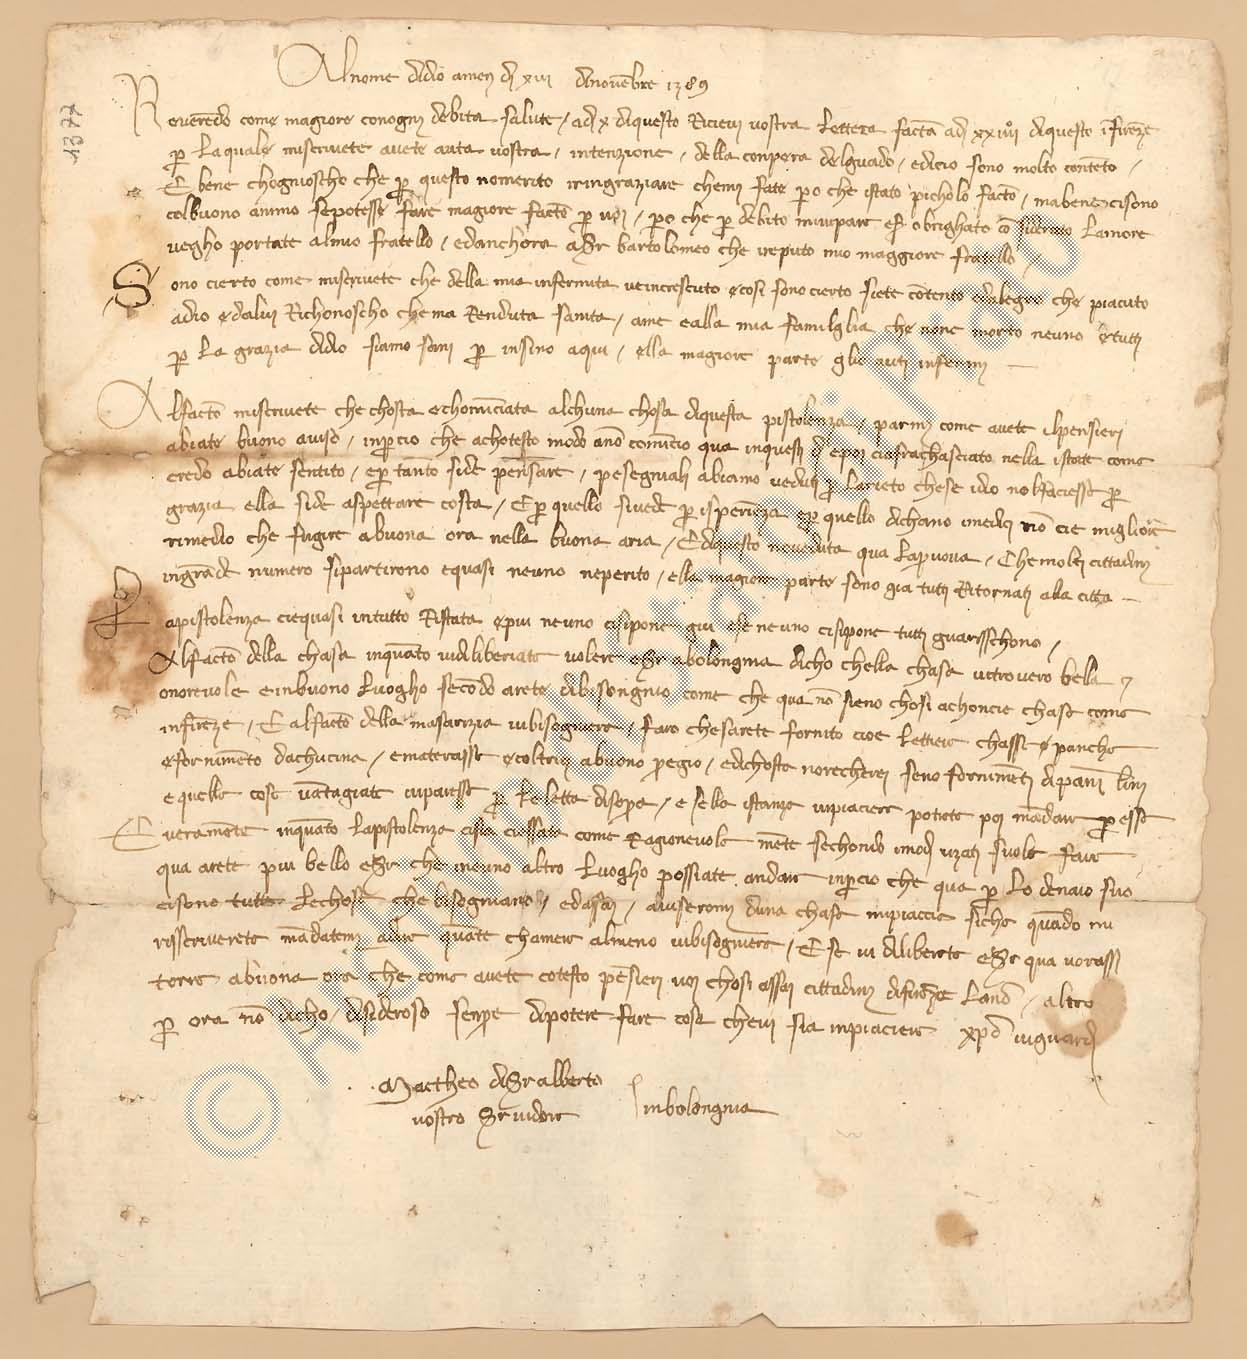 Al nome didio amen dì xiii dinovẽbre 1389
Reverẽdo come magiore conogni debita salute / adì x diquesto Ricievi vostra Lettera factã adì xxiiii diquesto ĩfirẽze
p Laquale miscrivete avete auta vostra / intenzione / della conpera delguado / edicio sono molto contẽto /
E bene chognioscho che p questo nomerito iringraziare chemi fate po che istato picholo factõ / mabene cisono
colbuono animo sepotessi fare magiore factõ p voi / po che p debito mipare eser obrighato cõsiderato Lamore
vegho portate almio fratello / edanchora aSr bartolomeo che ireputo mio maggiore fratello /
Sono cierto come miscrivete che della mia infermita veincresciuto ecosi sonocierto siete cõtento edalegro che piaciuto
adio edalui Richonoscho chema Renduta sanita / ame ealla mia familglia che nonc morto neuno etuti
p La grazia didio siamo sani p insino aqui / ella magiore parte glie auti infermi
Alfactõ miscrivete che chosta echomĩciata alchuna chosa diquesta pistolenza / parmi come avete ilpensieri
abiate buono aviso / inpcio che achotesto modo anõ comĩcio qua inquesti dì epoi ciafrachasciato nella istate come
credo abiate sentito / eptanto side pensare / pesegniali abiamo veduti p Larieto chese idio nolfaciesse p
grazia ella side aspettare costa / Ep quello sivede p isperiẽza ep quello dichano imedici nõ cie migliore
rimedio che fugire abuona ora nella buona aria / Ediquesto neveduta qua Lapruova / Chemolti cittadini
ingrãde numero sipartirono equasi neuno neperito / ella magiore parte sono gia tuti Ritornati ala citta
Lapistolenza cicquasi intutto Ristata epiu neuno cisipone giu ese neuno cisipone tuti guarisschono /
Alfactõ della chasa inquãto vidiliberiate volere eSr abolongnia dicho chella chasa vitrovero bella e
onorevole einbuono Luogho secõdo arete dibisongnio come che qua nõ sieno chosi achoncie chase come
infirẽze / E alfactõ della masarizia vibisogniere / faro chesarete fornito cioe Lettiere chassi epanche
efornimẽto dachucina / ematerasse ecoltrici abuono pregio / edichosta norecherei seno fornimẽti dipani lini
equelle cose vãtagiate viparesse p Leletta disopra / e sella istanza vipiaciere potrete poi mãdare p esse
E veramẽte inquãto Lapistolenza cista ciessata come Ragionevole mẽte sechondo imodi usati suole fare
qua arete piu bello eSr che ineuno altro Luogho possiate andare inpcio che qua p Lo denaio suo
cisono tutte Lechose che bisogniano / edassai / aviseromi duna chasa mipiaccia siche quãdo mi
risscriverete mãdatemi adire quãte chamere almeno vibisogniere / E se vi diliberete eSr qua vorassi
torre abuona ora che come avete cotesto pẽsieri voi chosi assai cittadini difirẽze Lanõ / altro
p ora nõ dicho / disideroso senpre dipotere fare cosa chevi sia inpiaciere xpõ viguardi
Mactheo diSr alberto
vostro Srvidore inbolongnia
1377
© Archivio di Stato di Prato